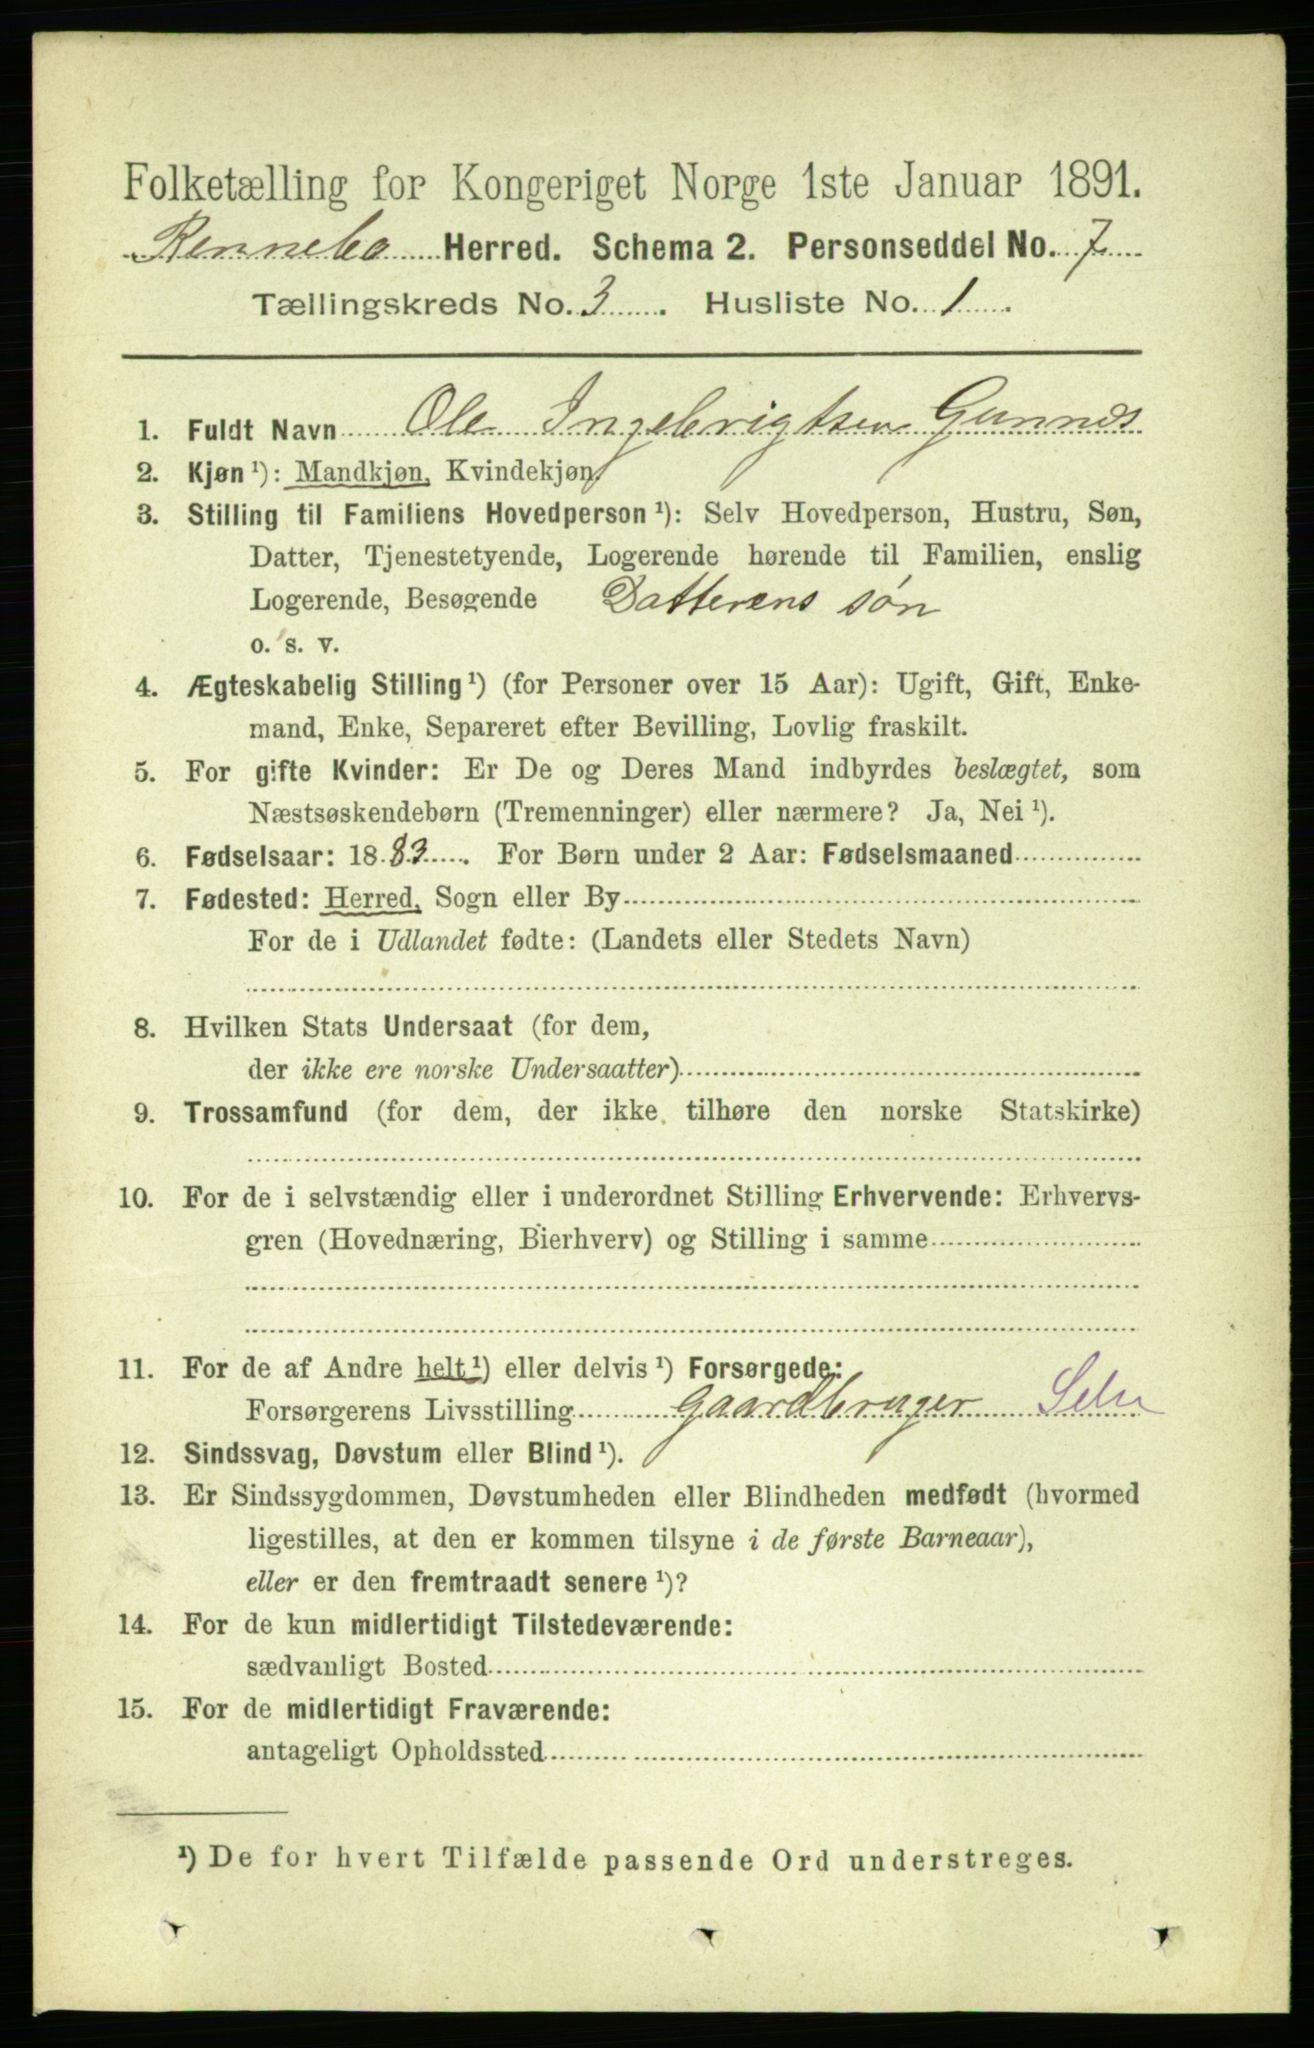 Folketælling for Kongeriget Norge 1ste Januar 1891.
Rennebo Herred. Schema 2. Personseddel No. 7
Tællingskreds No. 3. Husliste No. 1.
1. Fuldt Navn Ole Ingebrigtsen Gunnes
2. Kjøn ¹): Mandkjøn, Kvindekjøn.
3. Stilling til Familiens Hovedperson ¹): Selv Hovedperson, Hustru, Søn,
Datter, Tjenestetyende, Logerende hørende til Familien, enslig
Logerende, Besøgende Datterens søn
o. s. v.
4. Ægteskabelig Stilling ¹) (for Personer over 15 Aar): Ugift, Gift, Enke-
mand, Enke, Separeret efter Bevilling, Lovlig fraskilt.
5. For gifte Kvinder: Er De og Deres Mand indbyrdes beslægtet, som
Næstsøskendebørn (Tremenninger) eller nærmere? Ja, Nei ¹).
6. Fødselsaar: 1883. For Børn under 2 Aar: Fødselsmaaned
7. Fødested: Herred, Sogn eller By
For de i Udlandet fødte: (Landets eller Stedets Navn)
8. Hvilken Stats Undersaat (for dem,
der ikke ere norske Undersaatter)
9. Trossamfund (for dem, der ikke tilhøre den norske Statskirke)
10. For de i selvstændig eller i underordnet Stilling Erhvervende: Erhvervs-
gren (Hovednæring, Bierhverv) og Stilling i samme
11. For de af Andre helt ¹) eller delvis ¹) Forsørgede:
Forsørgerens Livsstilling Gaardbruger Selv
12. Sindssvag, Døvstum eller Blind ¹).
13. Er Sindssygdommen, Døvstumheden eller Blindheden medfødt (hvormed
ligestilles, at den er kommen tilsyne i de første Barneaar),
eller er den fremtraadt senere ¹)?
14. For de kun midlertidigt Tilstedeværende:
sædvanligt Bosted
15. For de midlertidigt Fraværende:
antageligt Opholdssted
¹) De for hvert Tilfælde passende Ord understreges.